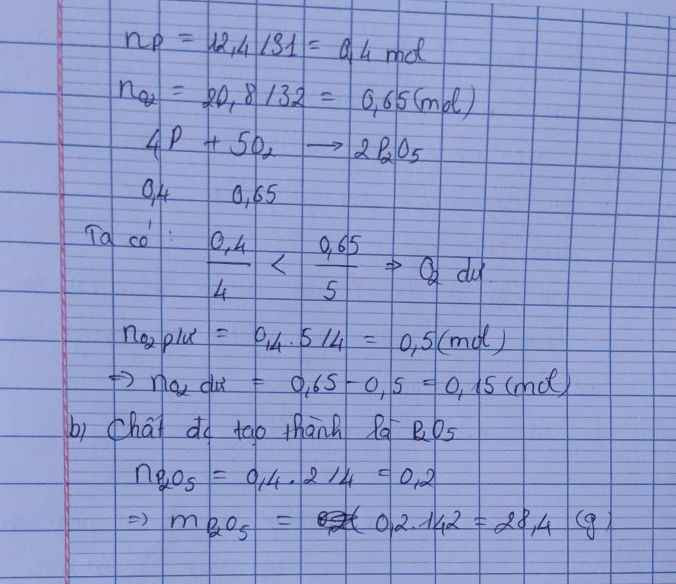 nP = 12,4/31 = 0,4 mol
nO2 = 20,8/32 = 0,65(mol)
4P + 5O2 → 2P2O5
0,4 0,65
Ta có: 0,4/4 < 0,65/5 ⇒ O2 dư
nO2 pư = 0,4.5/4 = 0,5(mol)
⇒ nO2 dư = 0,65 - 0,5 = 0,15(mol)
b) Chất đc tạo thành là P2O5
nP2O5 = 0,4.2/4 = 0,2
⇒ mP2O5 = 0,2.142 = 28,4 (g)